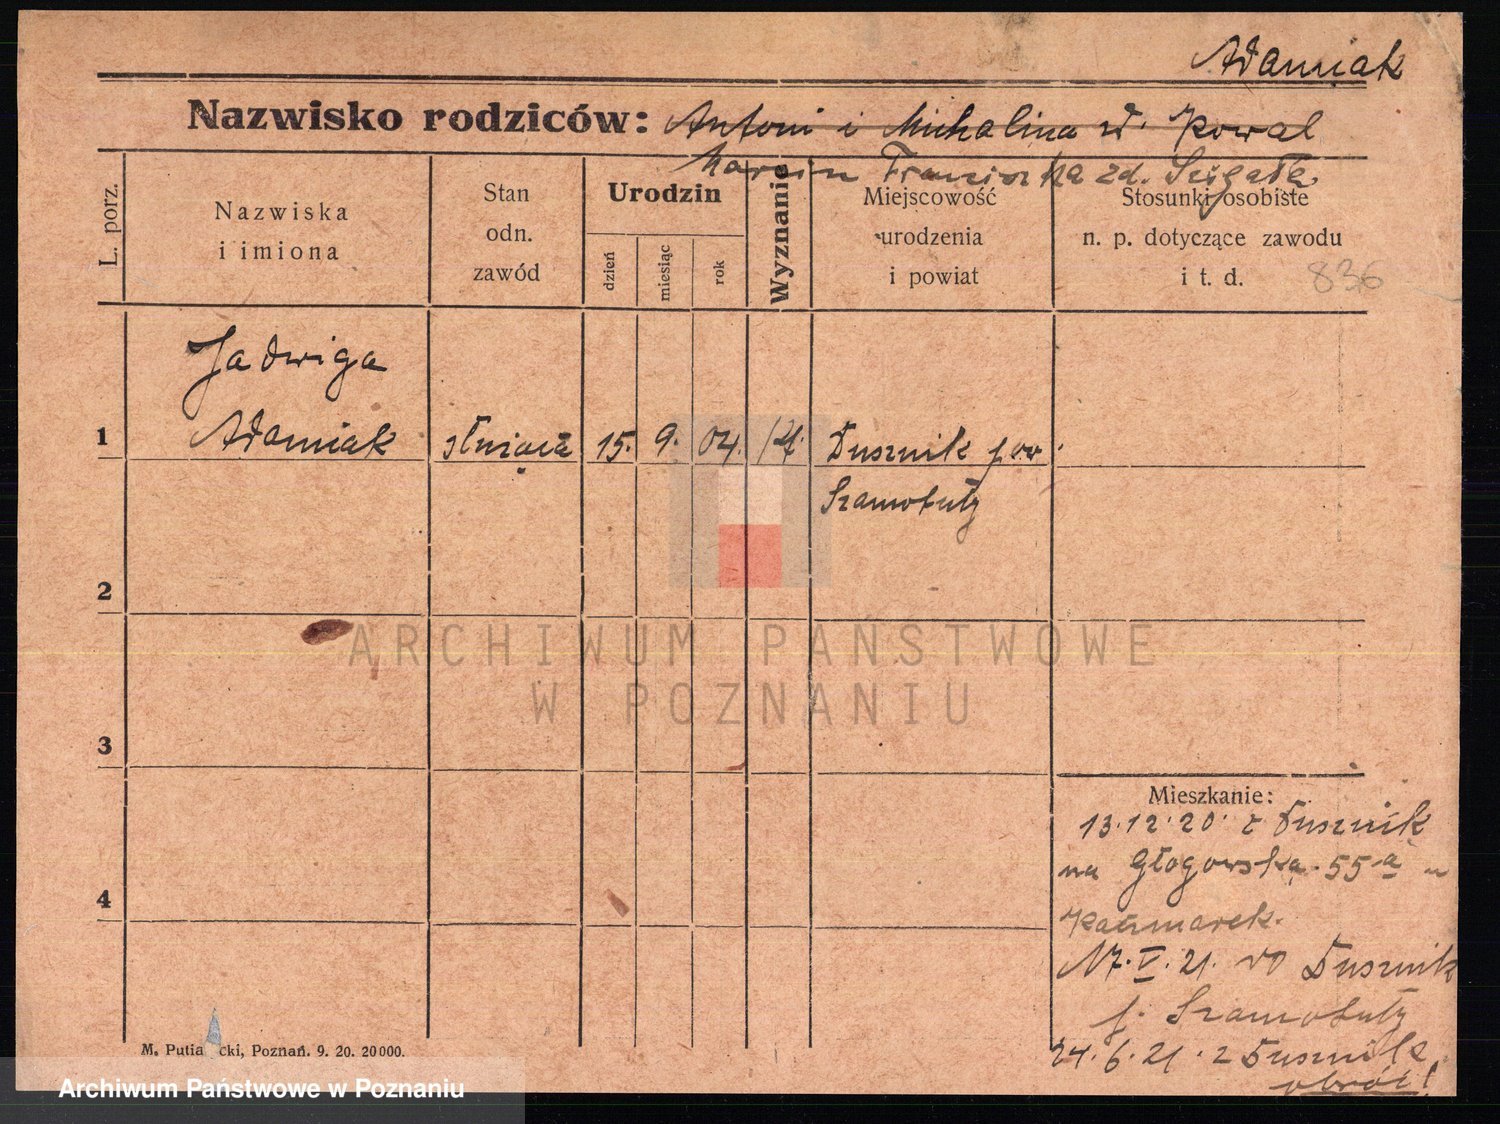 Adamiak
Nazwisko rodziców: Antoni i Michalina z d. Kowal
Marcin Franciszka zd. Szygała
L. porz.
Nazwiska
i imiona
Stan
odn.
zawód
Urodzin
dzień
miesiąc
rok
Wyznanie
Miejscowość
urodzenia
i powiat
Stosunki osobiste
n. p. dotyczące zawodu
i t. d.
836
Jadwiga
1 Adamiak służąca 15. 9. 04. Dusznik pow.
Szamotuły
2
3
4
Mieszkanie:
13.12.20. z Dusznik
na Głogowska 55 a u
Kaczmarek.
17.V.21. do Dusznik
p. Szamotuły
24.6.21. z Dusznik
obróć!
M. Putia cki, Poznań. 9. 20. 20000.
ARCHIWUM PAŃSTWOWE
W POZNANIU
Archiwum Państwowe w Poznaniu